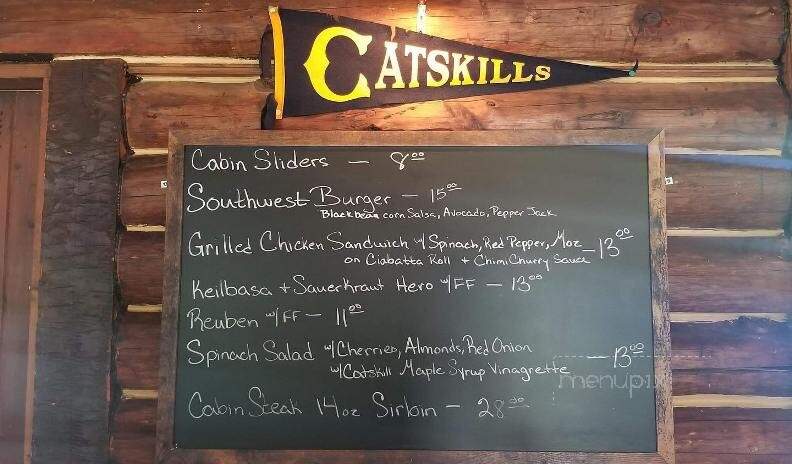 CATSKILLS
Cabin Sliders — 8.00
Southwest Burger — 15.00
Black bean corn Salsa, Avocado, Pepper Jack
Grilled Chicken Sandwich w/ Spinach, Red Pepper, Moz — 13.00
on Ciabatta Roll + ChimiChurry Sauce
Keilbasa + Sauerkraut Hero w/FF — 13.00
Reuben w/FF — 11.00
Spinach Salad w/ Cherries, Almonds, Red Onion — 13.00
w/ Catskill Maple Syrup Vinagrette
menupix
Cabin Steak 14oz Sirloin — 28.00